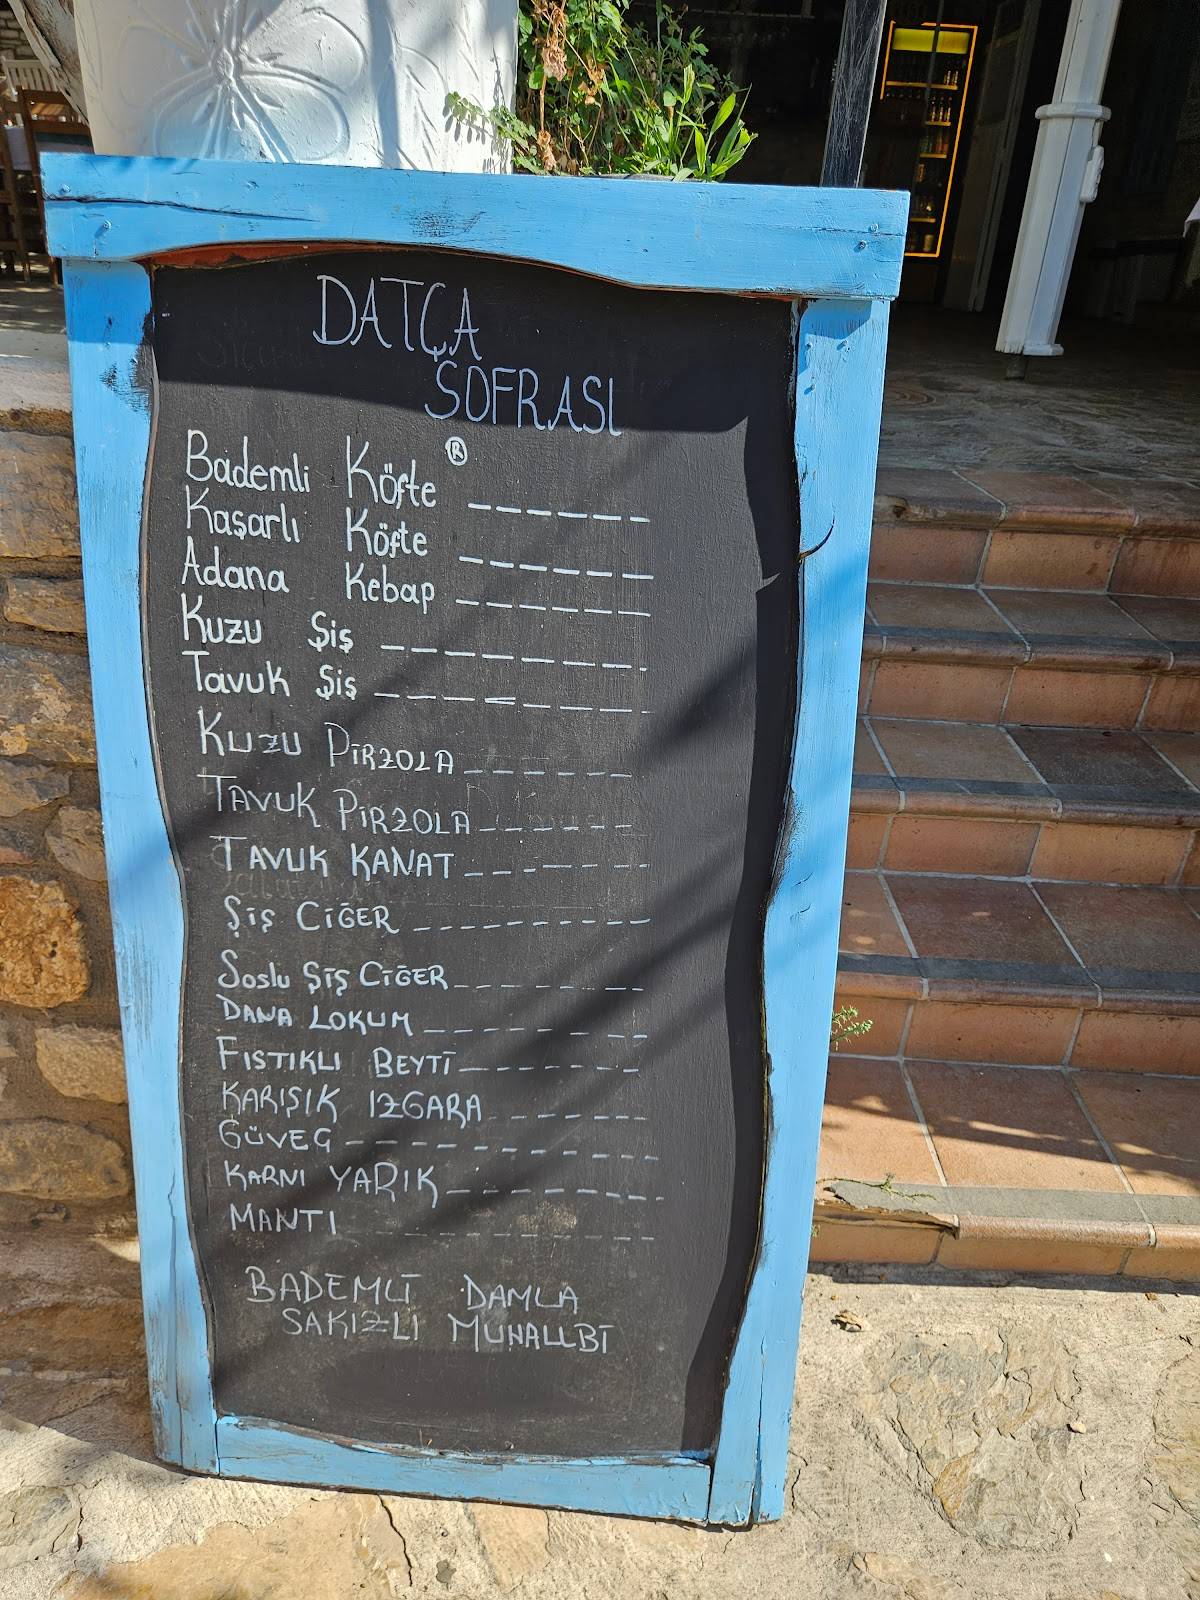 DATÇA
SOFRASI
Bademli Köfte ®
Kaşarlı Köfte
Adana Kebap
Kuzu Şiş
Tavuk Şiş
KUZU PİRZOLA
TAVUK PİRZOLA
TAVUK KANAT
ŞİŞ CİĞER
Soslu ŞİŞ CİĞER
DANA LOKUM
FISTIKLI BEYTİ
KARIŞIK IZGARA
GÜVEÇ
KARNI YARIK
MANTI
BADEMLİ DAMLA
SAKIZLI MUHALLBİ